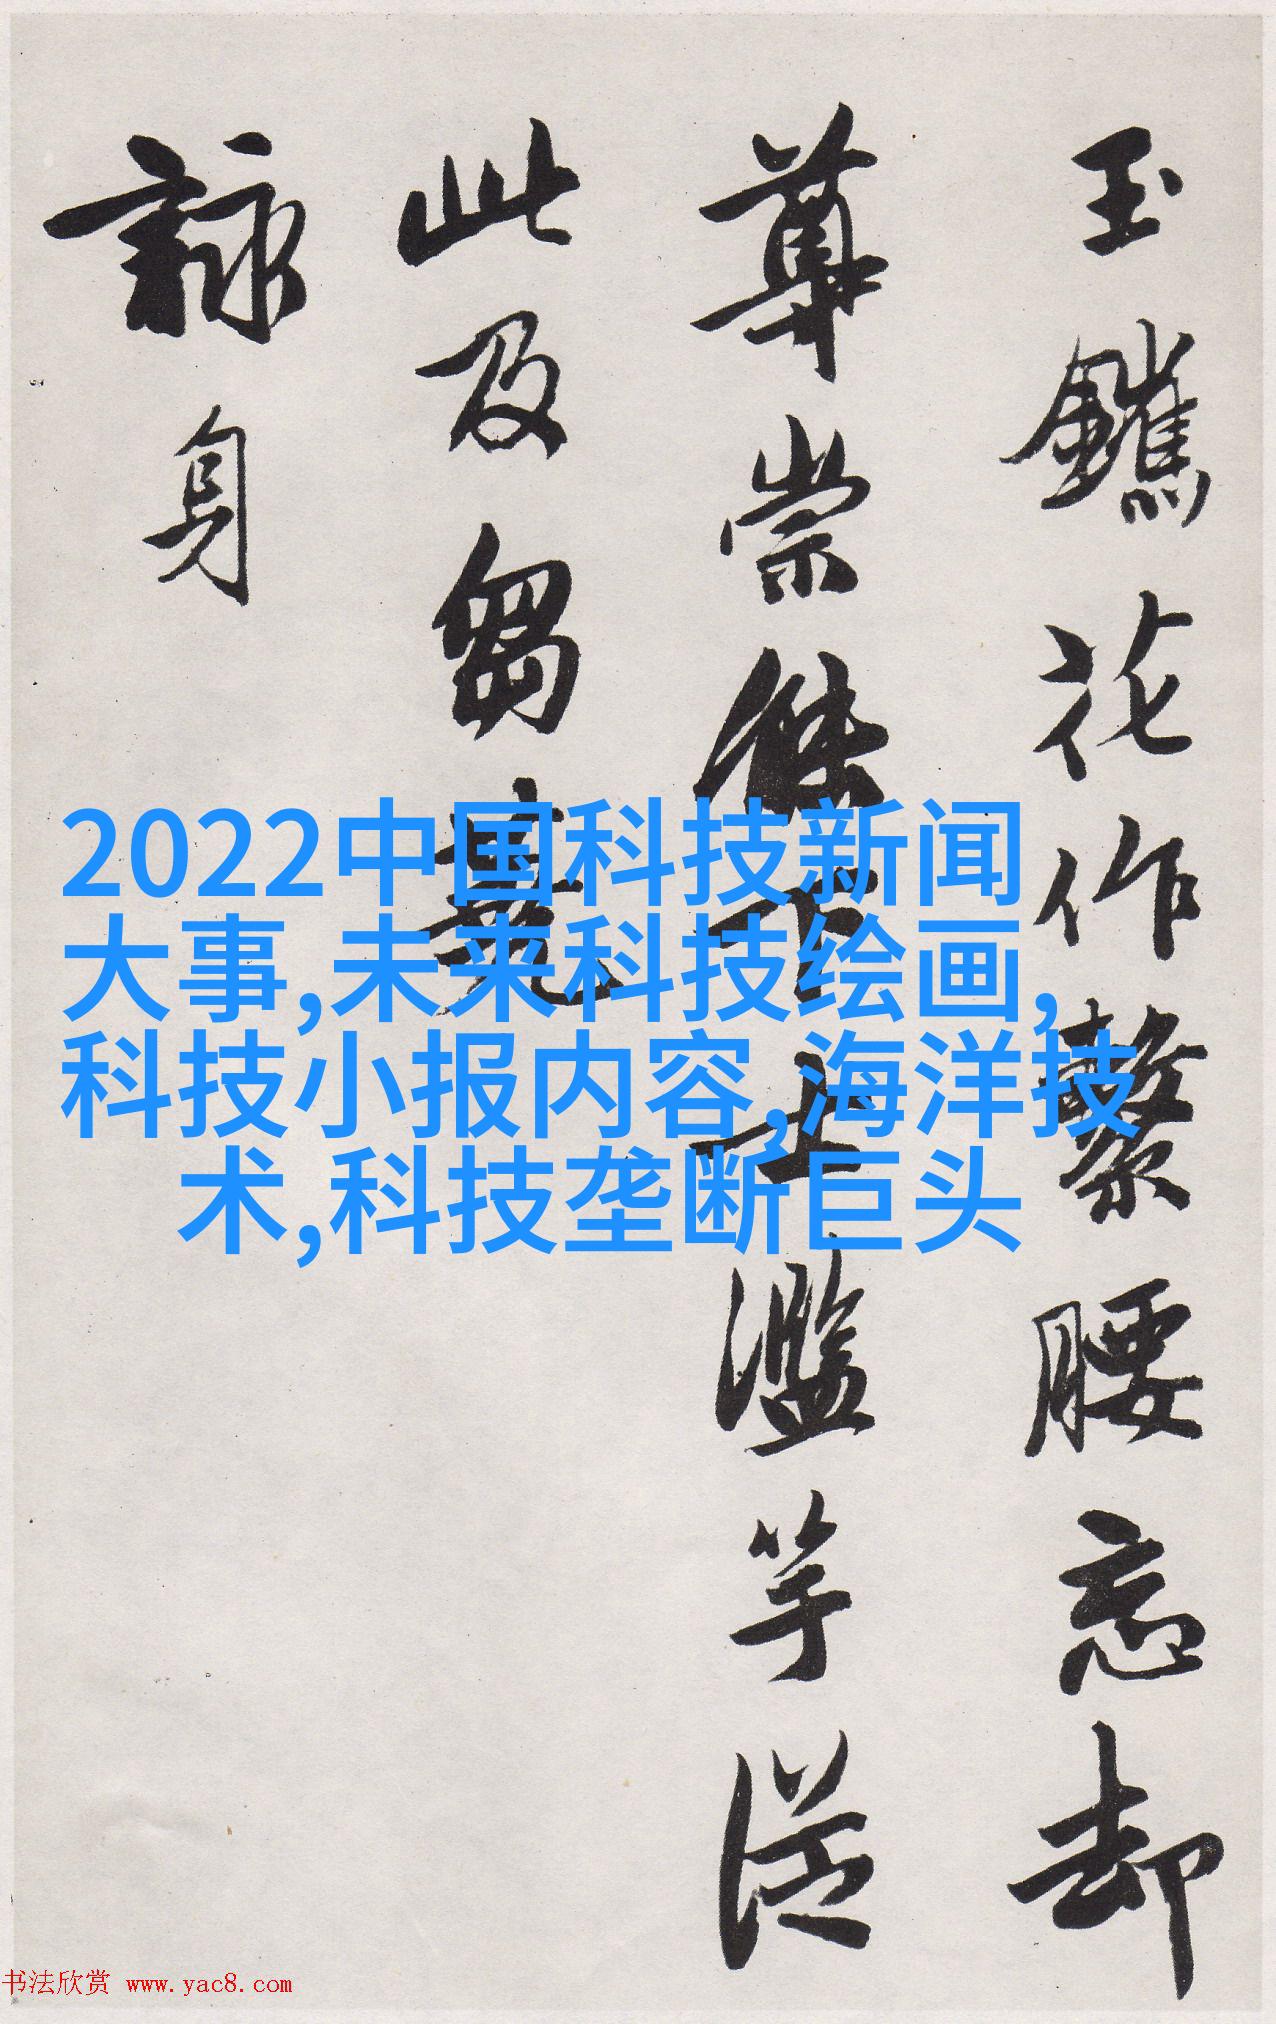 玉花作繫腰忘却
崇下士濫竽從
此及芻蕘
詠身
2022中国科技新闻
大事,未来科技绘画,
科技小报内容,海洋技
术,科技垄断巨头
书法欣赏 www.yac8.com